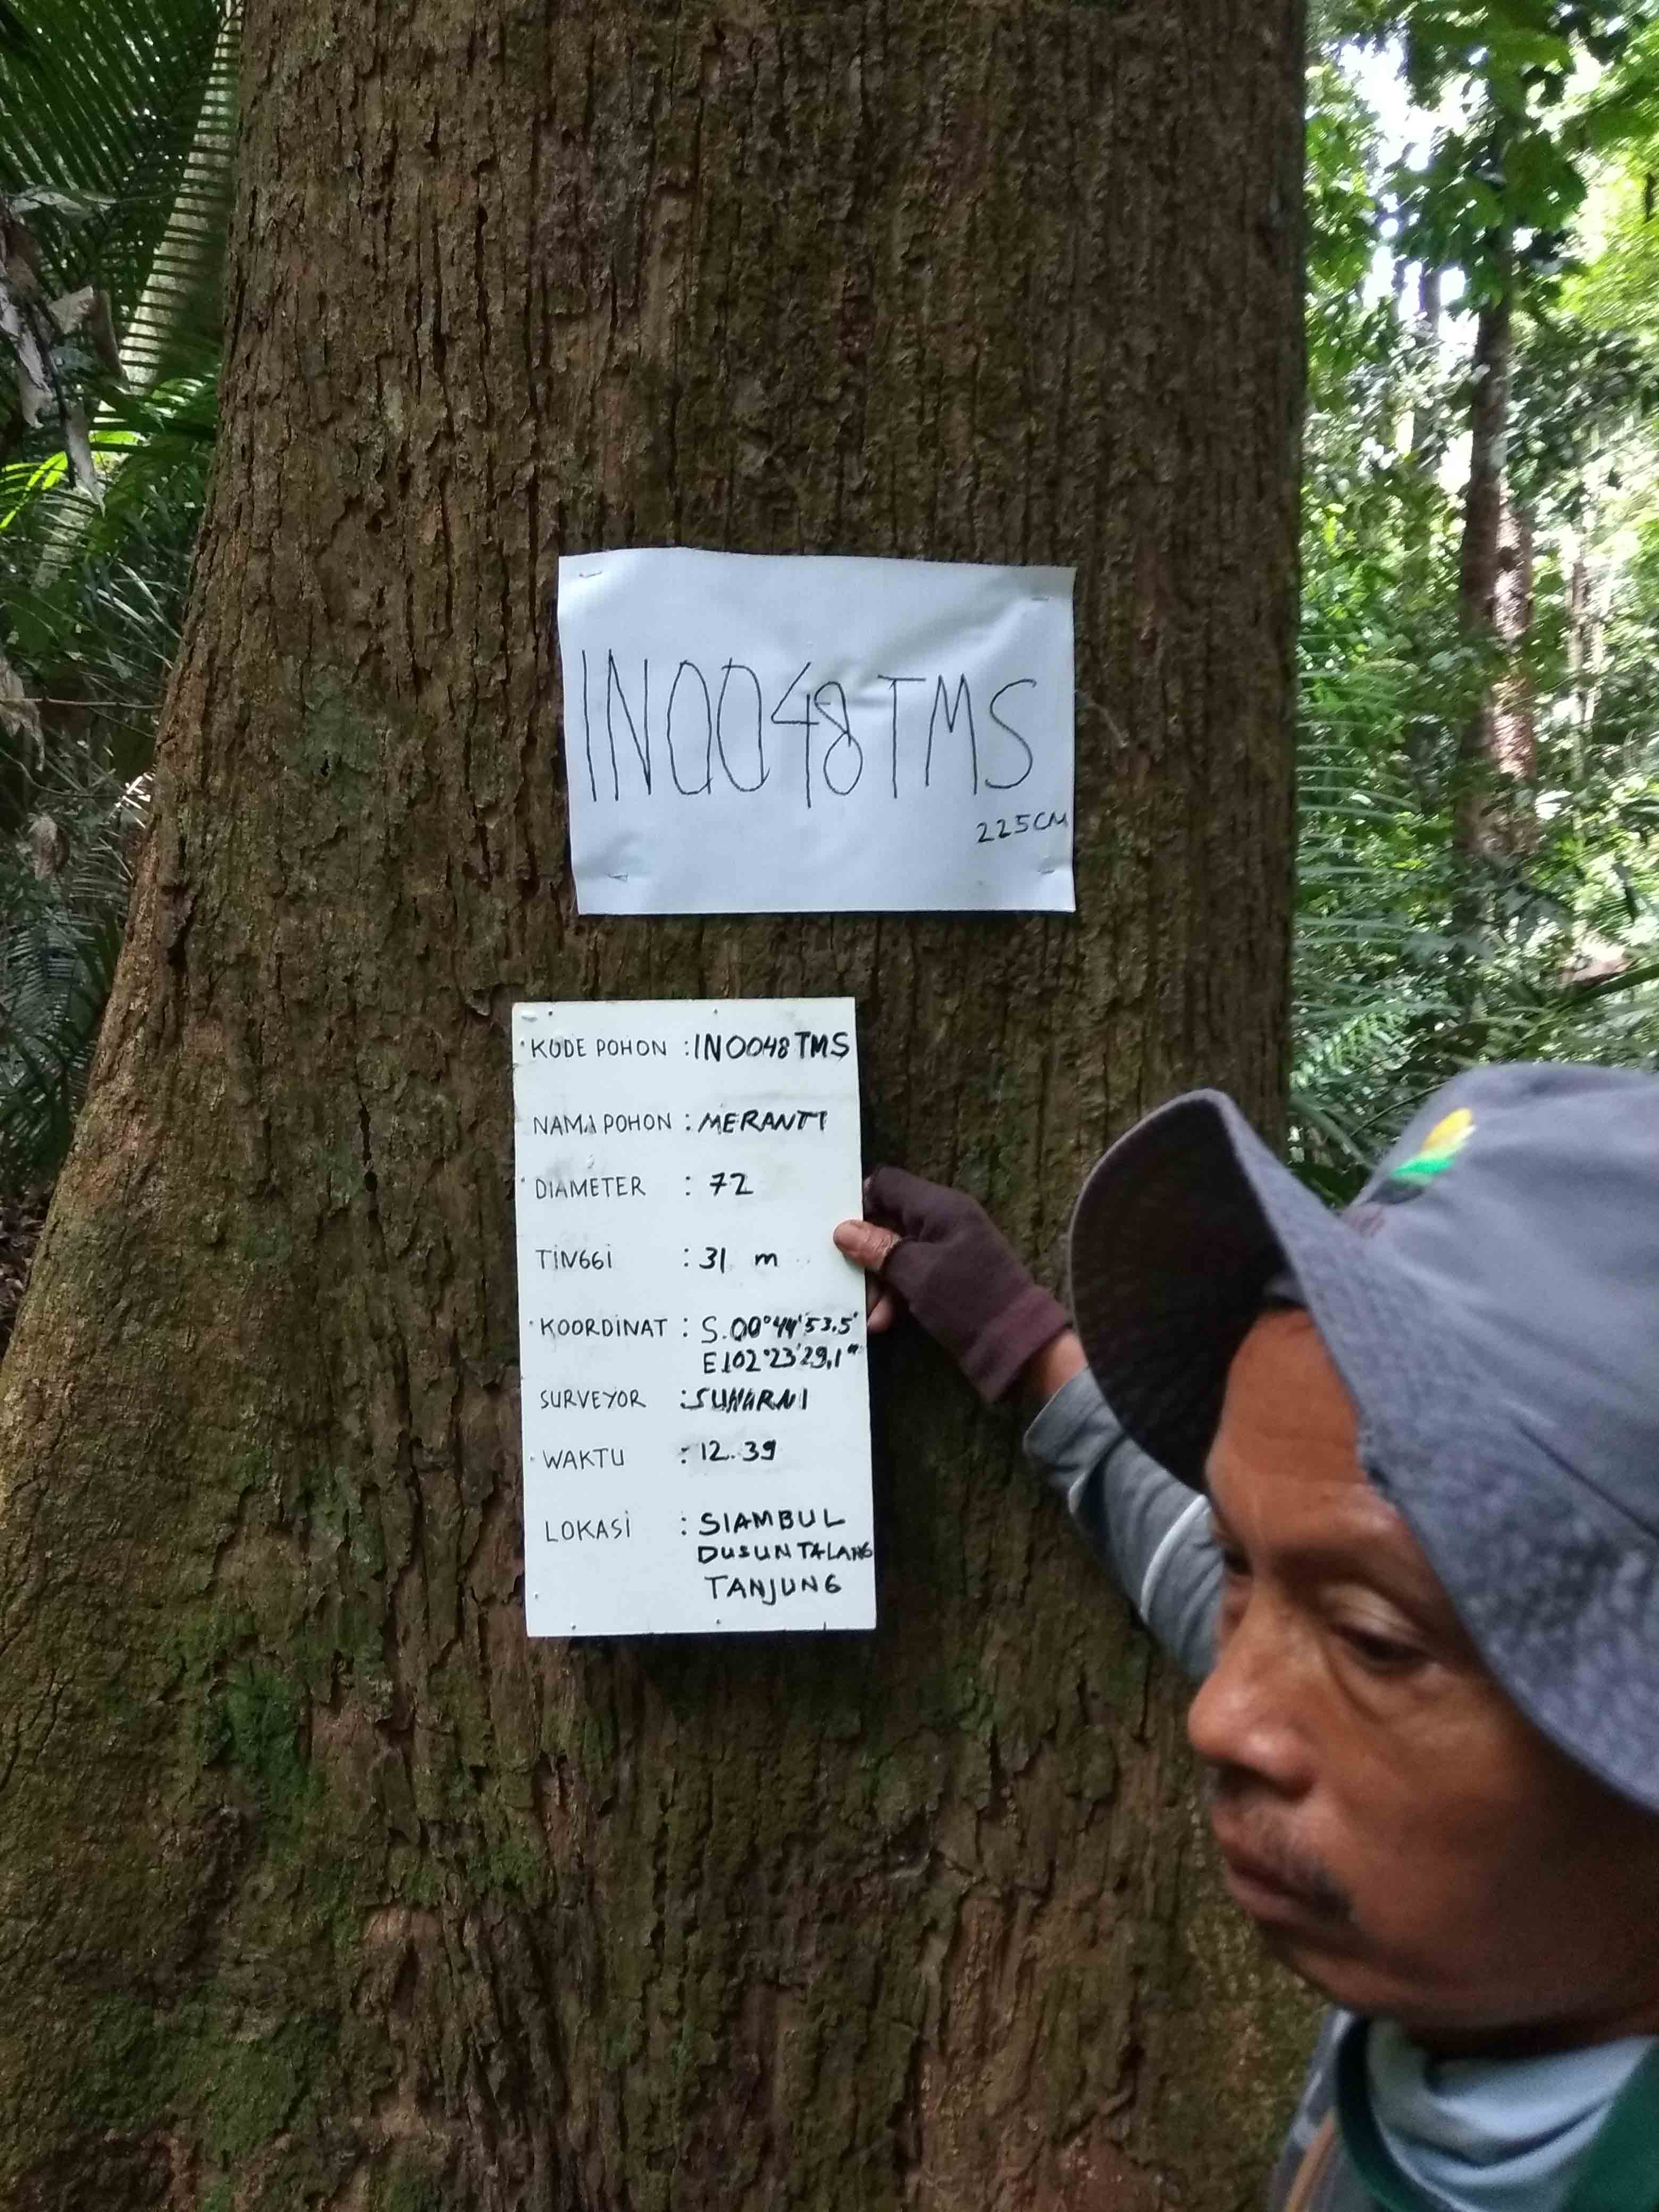 IN0048TMS
225CM
KODE POHON : IN0048 TMS
NAMA POHON : MERANTI
DIAMETER : 72
TINGGI : 31 m
KOORDINAT : S.00°44'53.5"
E102°23'29,1"
SURVEYOR : SUHARNI
WAKTU : 12.39
LOKASI : SIAMBUL
DUSUN TALANG
TANJUNG